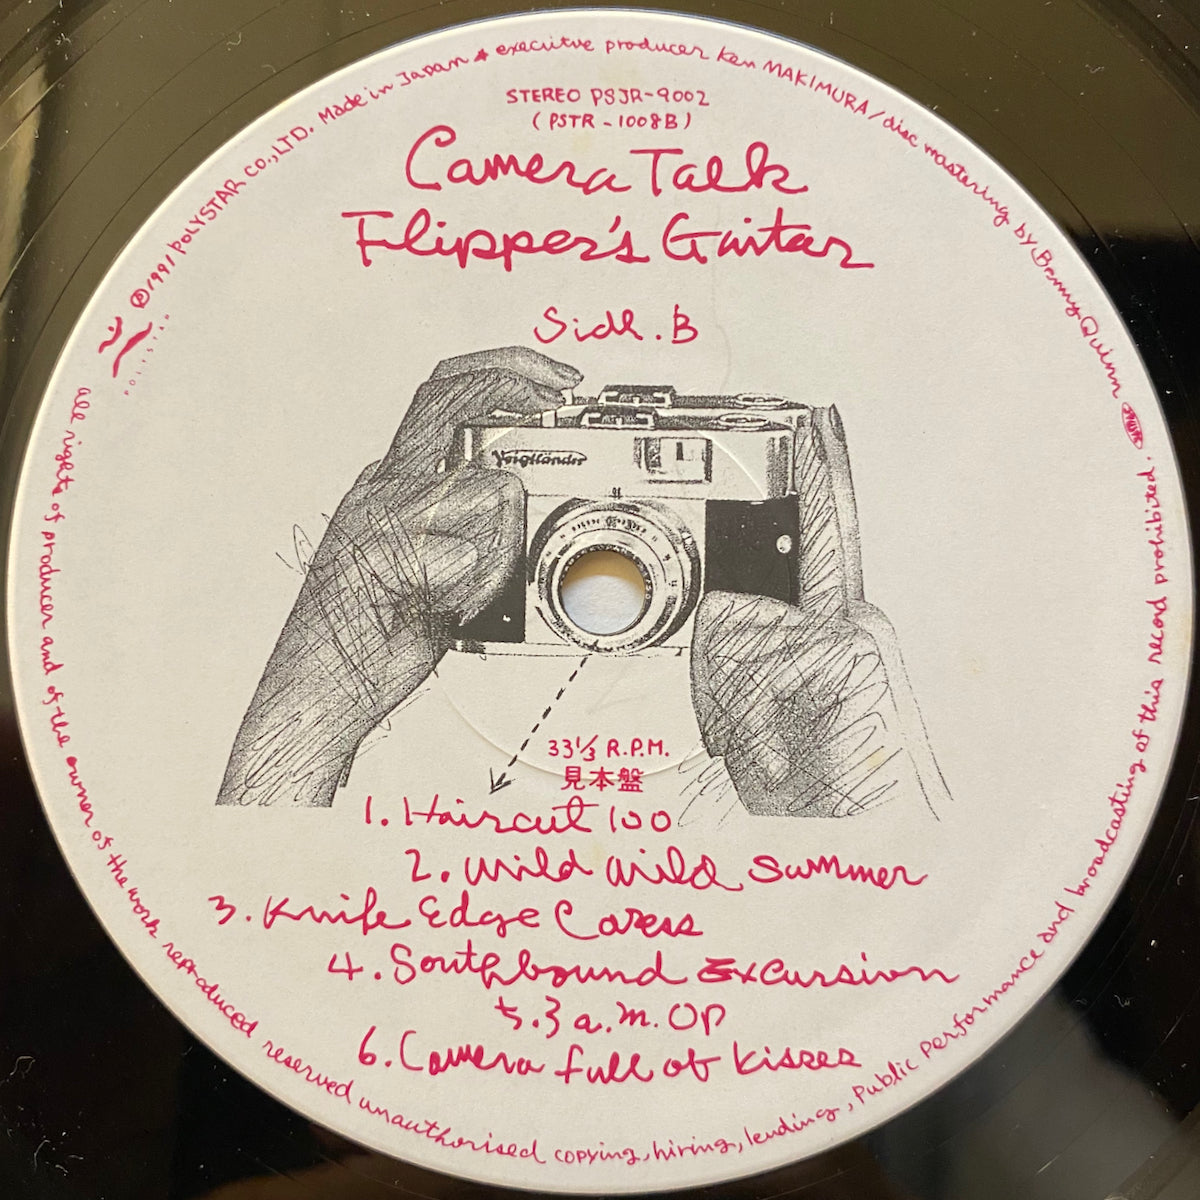 ℗1991 POLYSTAR CO.,LTD. Made in Japan ★ execuitve producer Ken MAKIMURA / disc mastering by Benny Quinn
STEREO PSJR-9002
(PSTR-1008B)
Camera Talk
Flipper's Guitar
Side.B
POLYSTAR
Voigtländer
33 1/3 R.P.M.
見本盤
1. Haircut 100
2. Wild Wild Summer
3. Knife Edge Caress
4. Southbound Excursion
5. 3 a.m. OP
6. Camera full of kisses
all rights of producer and of the owner of the work reproduced reserved unauthorised copying, hiring, lending, Public Performance and broadcasting of this record prohibited.